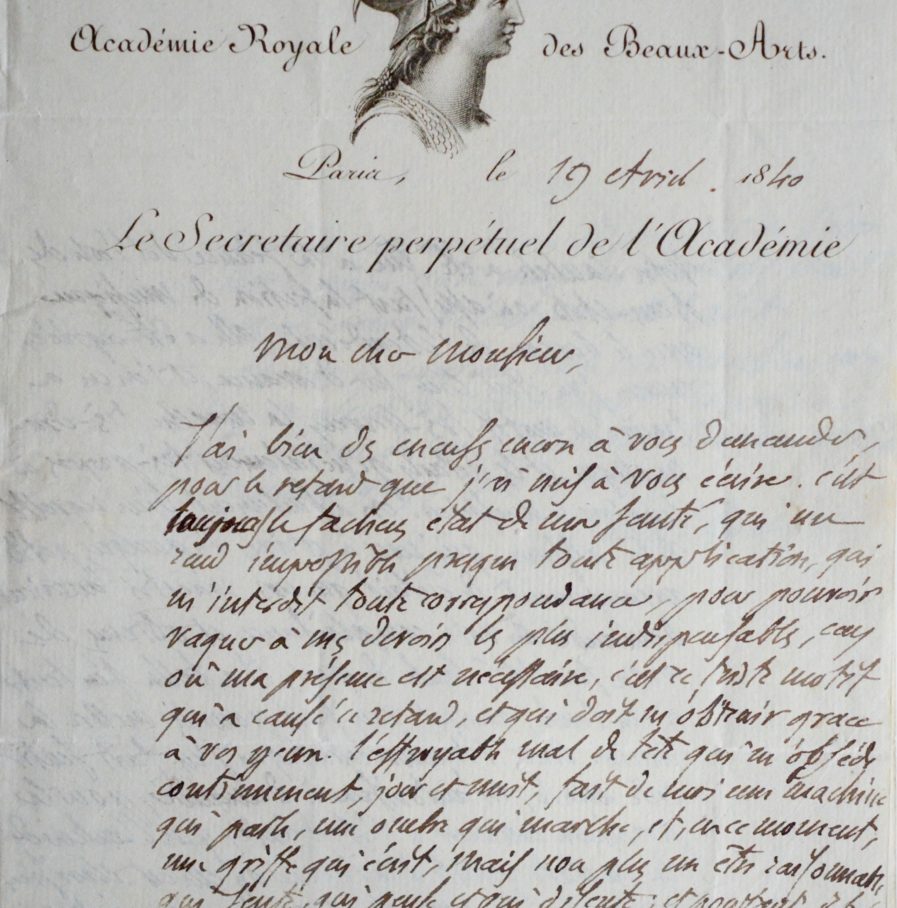 Académie Royale des Beaux-Arts.
Paris, le 19 Avril. 1840
Le Secretaire perpétuel de l'Académie
Mon cher Monsieur,
J'ai bien des excuses encore à vous demander,
pour le retard que j'ai mis à vous écrire. c'est
toujours le facheux état de ma santé, qui me
rend impossible presque toute application, qui
m'interdit toute correspondance, pour pouvoir
vaquer à mes devoirs les plus indispensables, ceux
où ma présence est nécessaire, c'est ce triste motif
qui a causé ce retard, et qui doit m'obtenir grace
à vos yeux. l'effroyable mal de tête qui m'obsède
continument, jour et nuit, fait de moi une machine
qui parle, une ombre qui marche, et, en ce moment,
une griffe qui écrit, mais non plus un être raisonnable
qui sent, qui pense et qui discute; et pourtant